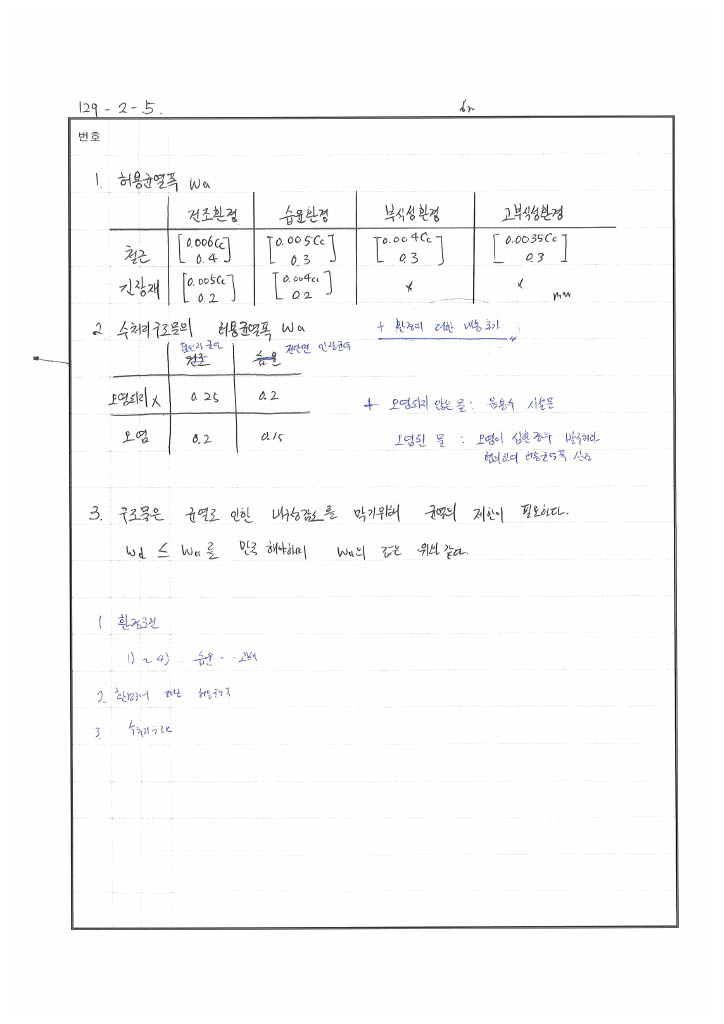 129 - 2 - 5.
번호
1. 허용균열폭 Wa
건조환경 습윤환경 부식성환경 고부식성환경
철근 [0.006Cc 0.4] [0.005Cc 0.3] [0.004Cc 0.3] [0.0035Cc 0.3]
긴장재 [0.005Cc 0.2] [0.004Cc 0.2] × × mm
2 수처리구조물의 허용균열폭 Wa + 환경에 대한 내용 추가
건조 습윤 전단면 인장균열
오염되지 × 0.25 0.2
+ 오염되지 않은 물 : 음용수 시설물
오염 0.2 0.15
오염된 물 : 오염이 심한 경우 발주자와
협의하여 허용균열폭 산정
3. 구조물은 균열로 인한 내구성감소를 막기위해 균열의 제한이 필요하다.
Wd ≤ Wa를 만족 해야하며 Wa의 값은 위와 같다.
1 환경조건
1) ~ 4) 습윤 - · 고부식
2 허용균열폭
3. 수처리구조물